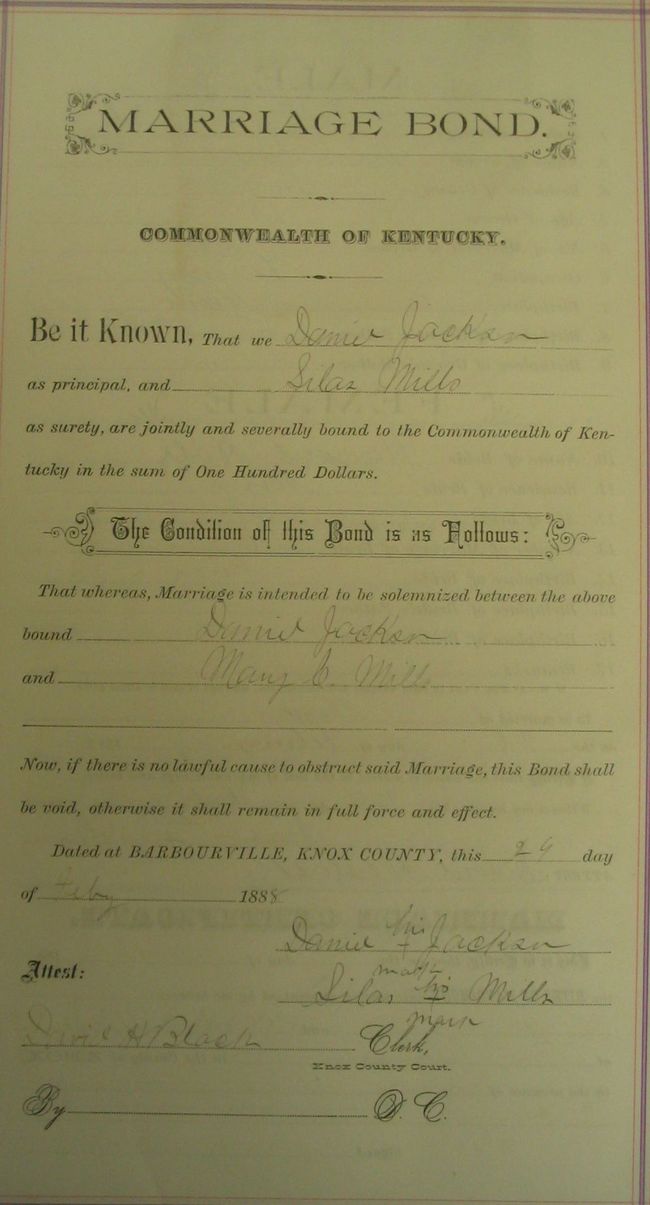 MARRIAGE BOND.
COMMONWEALTH OF KENTUCKY.
Be it Known, That we Daniel Jackson
as principal, and Silas Mills
as surety, are jointly and severally bound to the Commonwealth of Ken-
tucky in the sum of One Hundred Dollars.
The Condition of this Bond is as Follows:
That whereas, Marriage is intended to be solemnized between the above
bound Daniel Jackson
and Mary C. Mills
Now, if there is no lawful cause to obstruct said Marriage, this Bond shall
be void, otherwise it shall remain in full force and effect.
Dated at BARBOURVILLE, KNOX COUNTY, this 29 day
of Feby 1888
Daniel his + Jackson
mark
Attest:
Silas his + Mills
mark
David H Black Clerk,
Knox County Court.
By D. C.